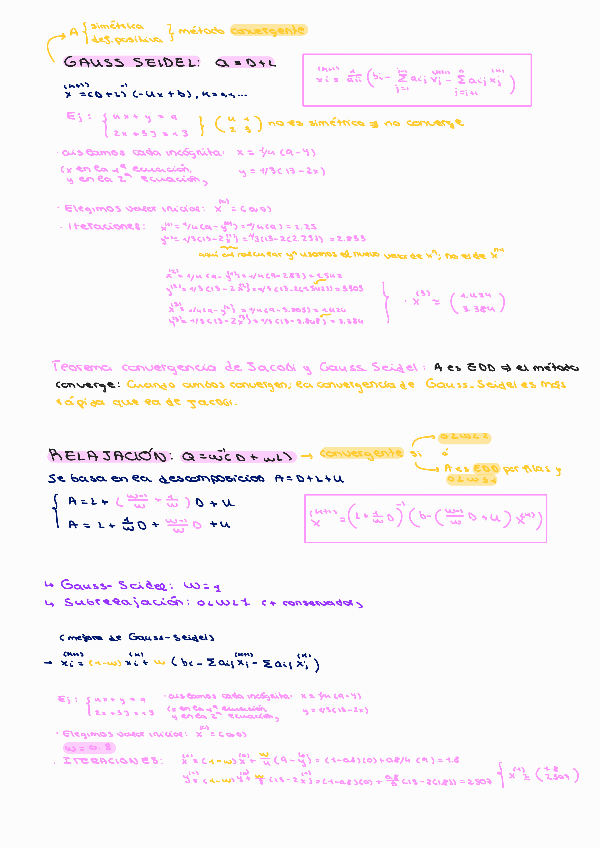 A { simétrica } método convergente
def. positiva
GAUSS SEIDEL: Q = D+L
x^(k+1) = (D+L)^-1 (-Ux+b), k=0,1...
xi^(k+1) = 1/aii (bi - Σ aij xj^(k+1) - Σ aij xj^(k))
j=1 j=i+1
Ej: { 4x+y=9
2x+3y=13 } (4 1
2 3) no es simétrico ⇒ no converge
· despejamos cada incógnita: x = 1/4 (9-y)
(x en la 1ª ecuación,
y en la 2ª ecuación) y = 1/3 (13-2x)
· Elegimos valor inicial: x^(0) = (0,0)
· Iteraciones: x^(1) = 1/4 (9-y^(0)) = 1/4 (9) = 2.25
y^(1) = 1/3 (13-2x^(1)) = 1/3 (13-2(2.25)) = 2.833
aquí al calcular y' usamos el nuevo valor de x', no el de
x^(2) = 1/4 (9-y^(1)) = 1/4 (9-2.83) = 1.542
y^(2) = 1/3 (13-2x^(2))
x^(3) = 1/4 (9-y^(2)) = 1/4 (9-3.305) = 1.424
y^(3) = 1/3 (13-2x^(3)) = = 3.384
· x^(3) ≈ (1.424
3.384)
Teorema convergencia de Jacobi y Gauss Seidel: A es EDD ⇒ el método
converge: Cuando ambos convergen, la convergencia de Gauss-Seidel es más
rápida que la de Jacobi.
RELAJACIÓN: Q = w^-1 (D + wL) → convergente si 0<w<2
ó
A es EDD por filas y
0<w≤1
Se basa en la descomposición A = D+L+U
{ A = L + (w-1/w + 1/w) D + U
A = L + 1/w D + w-1/w D + U
x^(k+1) = (L + 1/w D)^-1 (b - (w-1/w D + U) x^(k))
↳ Gauss-Seidel: w=1
↳ Subrelajación: 0<w<1 (+ conservador)
(mejora de Gauss-Seidel)
→ xi^(k+1) = (1-w) xi^(k) + w (bi - Σ aij xj^(k+1) - Σ aij xj^(k))
Ej: { 4x+y=9
2x+3y=13 · despejamos cada incógnita: x = 1/4 (9-y)
(x en la 1ª ecuación
y en la 2ª ecuación) y = 1/3 (13-2x)
· Elegimos valor inicial: x^(0) = (0,0)
w = 0.8
· ITERACIONES: x^(1) = (1-w) x^(0) + w/4 (9-y^(0)) = (1-0.8)(0) + 0.8/4 (9) = 1.8
y^(1) = (1-w) y^(0) + w/3 (13-2x^(1)) = (1-0.8)(0) + 0.8/3 (13-2(1.8)) = 2.507
{ x^(1) ≈ (1.8
2.507)